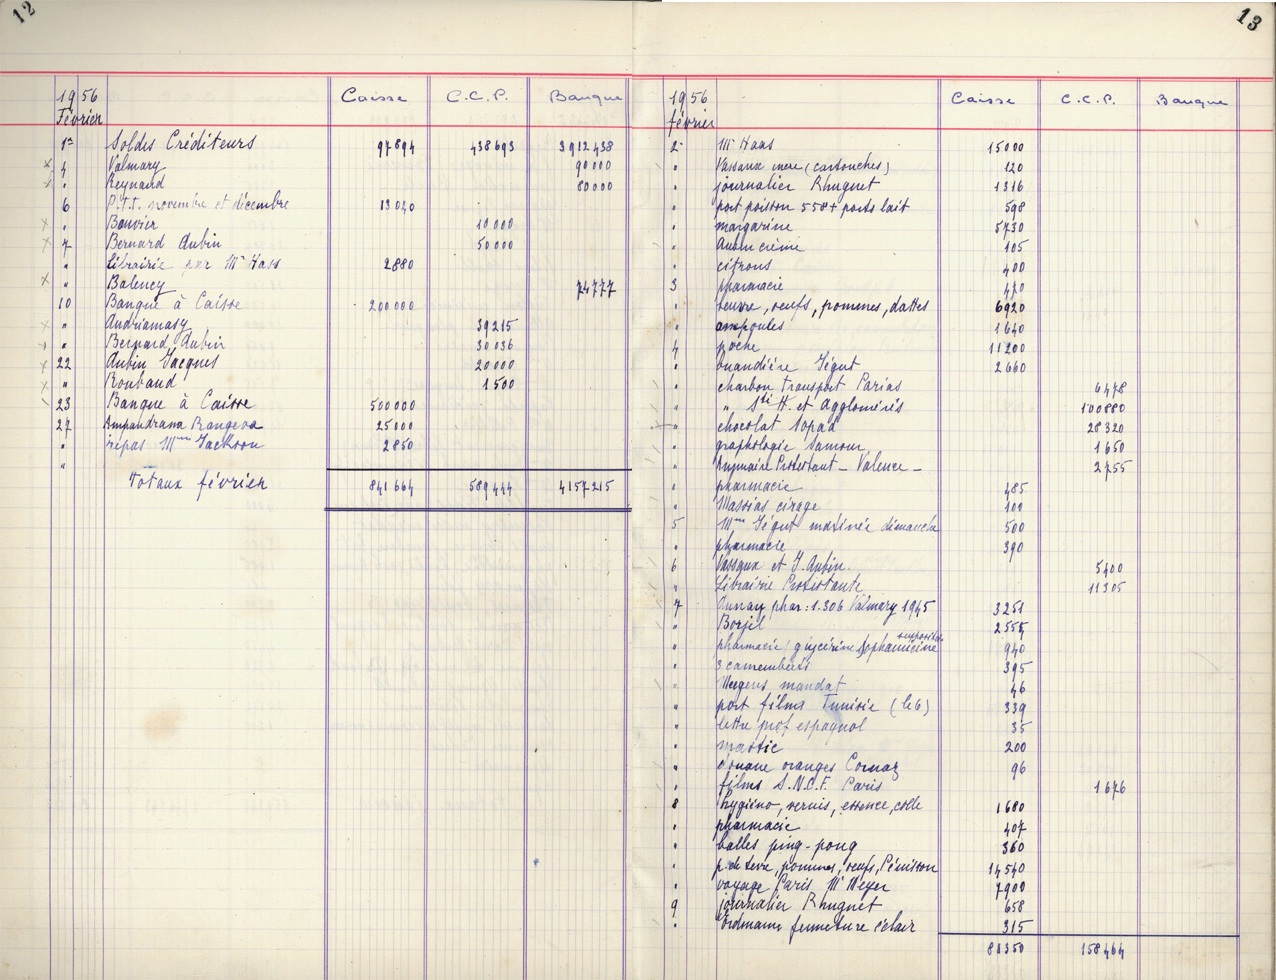 12
1956 Caisse C.C.P. Banque
Février
1er Soldes Créditeurs 97894 438693 3912438
x 4 Valmary 90000
x " Reynaud 80000
6 P.T.T. novembre et décembre 13040
x " Bouvier 10000
x 7 Bernard Aubin 50000
" Librairie par Mr Haas 2880
x " Balency 74777
10 Banque à Caisse 200000
x " Andriamasy 39215
x " Bernard Aubin 30036
x 22 Aubin Jacques 20000
x " Roubaud 1500
23 Banque à Caisse 500000
27 Ampandrana Rangeva 25000
" repas Mme Jackson 2850
"
Totaux février 841664 589444 4157215
13
1956 Caisse C.C.P. Banque
février
2 Mr Haas 15000
" Vassaux encre (cartouches) 120
" journalier Rhuguet 1316
" port poisson 558 + ports lait 598
" margarine 5730
" Aubin crème 105
" citrons 400
3 pharmacie 470
" beurre, oeufs, pommes, dattes 6920
" ampoules 1640
4 poche 11200
" buandière Ségut 2660
" charbon transport Parias 6478
" " Sté H. et Agglomérés 100880
" chocolat Sopad 28320
" graphologie Samour 1650
" Annuaire Protestant - Valence - 2755
" pharmacie 485
" Massias cirage 100
5 Mme Ségut matinée dimanche 500
" pharmacie 390
6 Vassaux et J. Aubin. 5400
" Librairie Protestante 11305
7 Aunay phar: 1.306 Valmary 1945 3251
" Borjil 2555
" pharmacie / glycérine 940
" 3 camemberts 395
" mandat 46
" port films Tunisie (le 6) 339
" lettre prof espagnol 35
" mastic 200
" douane oranges Cornaz 96
" films S.N.C.F. Paris 1676
8 hygiéno, vernis, essence, colle 1680
" pharmacie 407
" balles ping-pong 360
" p. de terre, pommes, oeufs, Pénisson 14540
" voyage Paris Mr Meyer 7900
9 journalier Rhuguet 658
" fermeture éclair 315
81350 158464